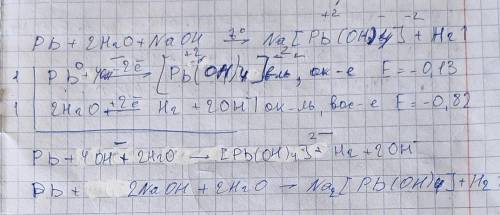 Pb + 2H2O + NaOH t° → Na[Pb(OH)4] + H2↑
1 | Pb⁰ + 4 −2ē → [Pb(OH)4]²⁻ ок-е E = −0,13
1 | 2H2O +2ē → H2 + 2OH⁻ | ок-ль, вос-е E = −0,82
Pb + 4OH⁻ + 2H2O → [Pb(OH)4]²⁻ + H2 + 2OH⁻
Pb + 2NaOH + 2H2O → Na2[Pb(OH)4] + H2